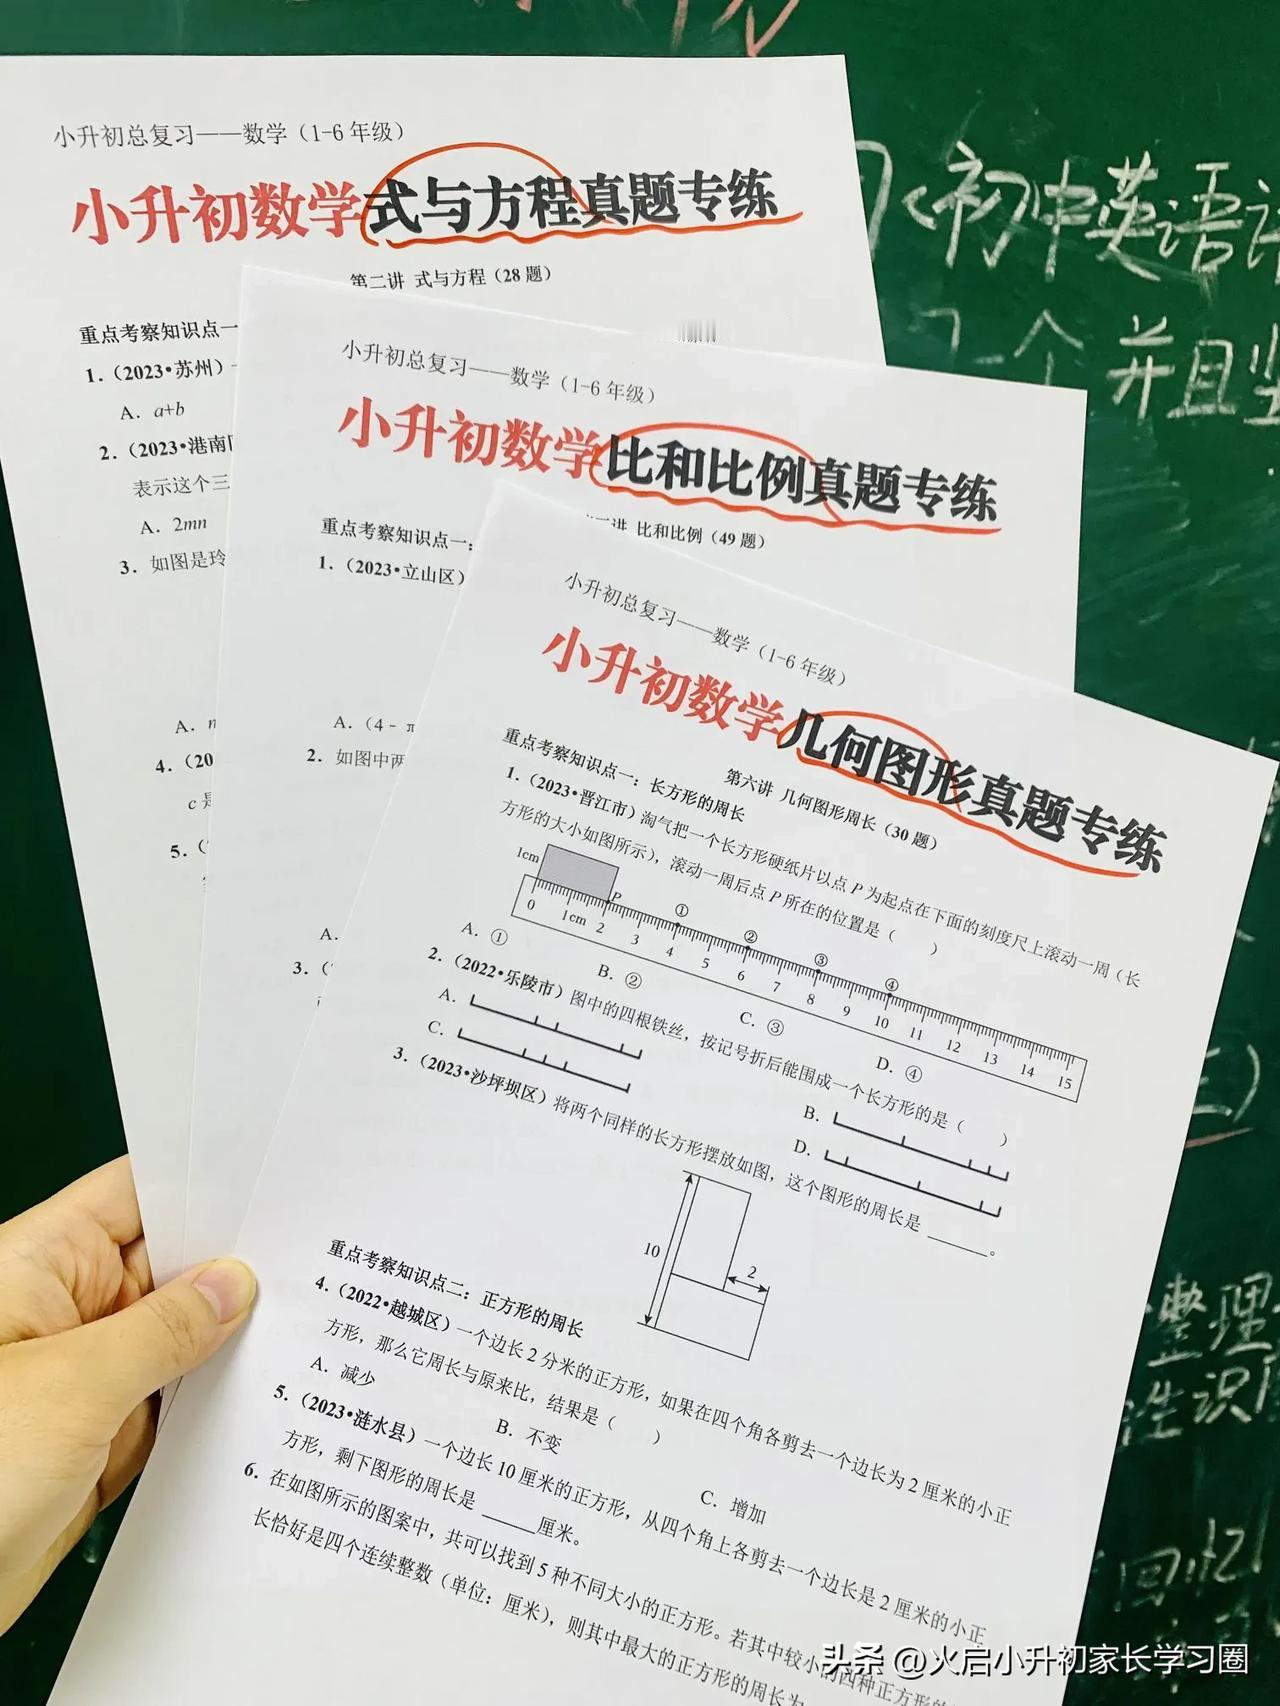 小升初总复习——数学（1-6 年级）
小升初数学式与方程真题专练
第二讲 式与方程（28 题）
重点考察知识点一
1.（2023•苏州）
A．a+b
2.（2023•港南
表示这个三
A．2mn
3．如图是玲
A．
4.（20
c 是
5.（
A．
小升初总复习——数学（1-6 年级）
小升初数学比和比例真题专练
讲 比和比例（49 题）
重点考察知识点一：
1.（2023•立山区）
A．（4﹣π
2．如图中两
A．
3.（
小升初总复习——数学（1-6 年级）
小升初数学几何图形真题专练
第六讲 几何图形周长（30 题）
重点考察知识点一：长方形的周长
1.（2023•晋江市）淘气把一个长方形硬纸片以点 P 为起点在下面的刻度尺上滚动一周（长
方形的大小如图所示），滚动一周后点 P 所在的位置是（　　）
1cm
P
① ② ③ ④
0 1cm 2 3 4 5 6 7 8 9 10 11 12 13 14 15
A．① B．② C．③ D．④
2.（2022•乐陵市）图中的四根铁丝，按记号折后能围成一个长方形的是（　　）
A． B．
C． D．
3.（2023•沙坪坝区）将两个同样的长方形摆放如图，这个图形的周长是 ______。
10
2
重点考察知识点二：正方形的周长
4.（2022•越城区）一个边长 2 分米的正方形，如果在四个角各剪去一个边长为 2 厘米的小正
方形，那么它周长与原来比，结果是（　　）
A．减少 B．不变 C．增加
5.（2023•涟水县）一个边长 10 厘米的正方形，从四个角上各剪去一个边长是 2 厘米的小正
方形，剩下图形的周长是 ______厘米。
6．在如图所示的图案中，共可以找到 5 种不同大小的正方形。若其中较小的四种正方形的
长恰好是四个连续整数（单位：厘米），则其中最大的正方形的周长为
初中英语
个 并且
三）
整理
性识
回忆
头条 @火启小升初家长学习圈